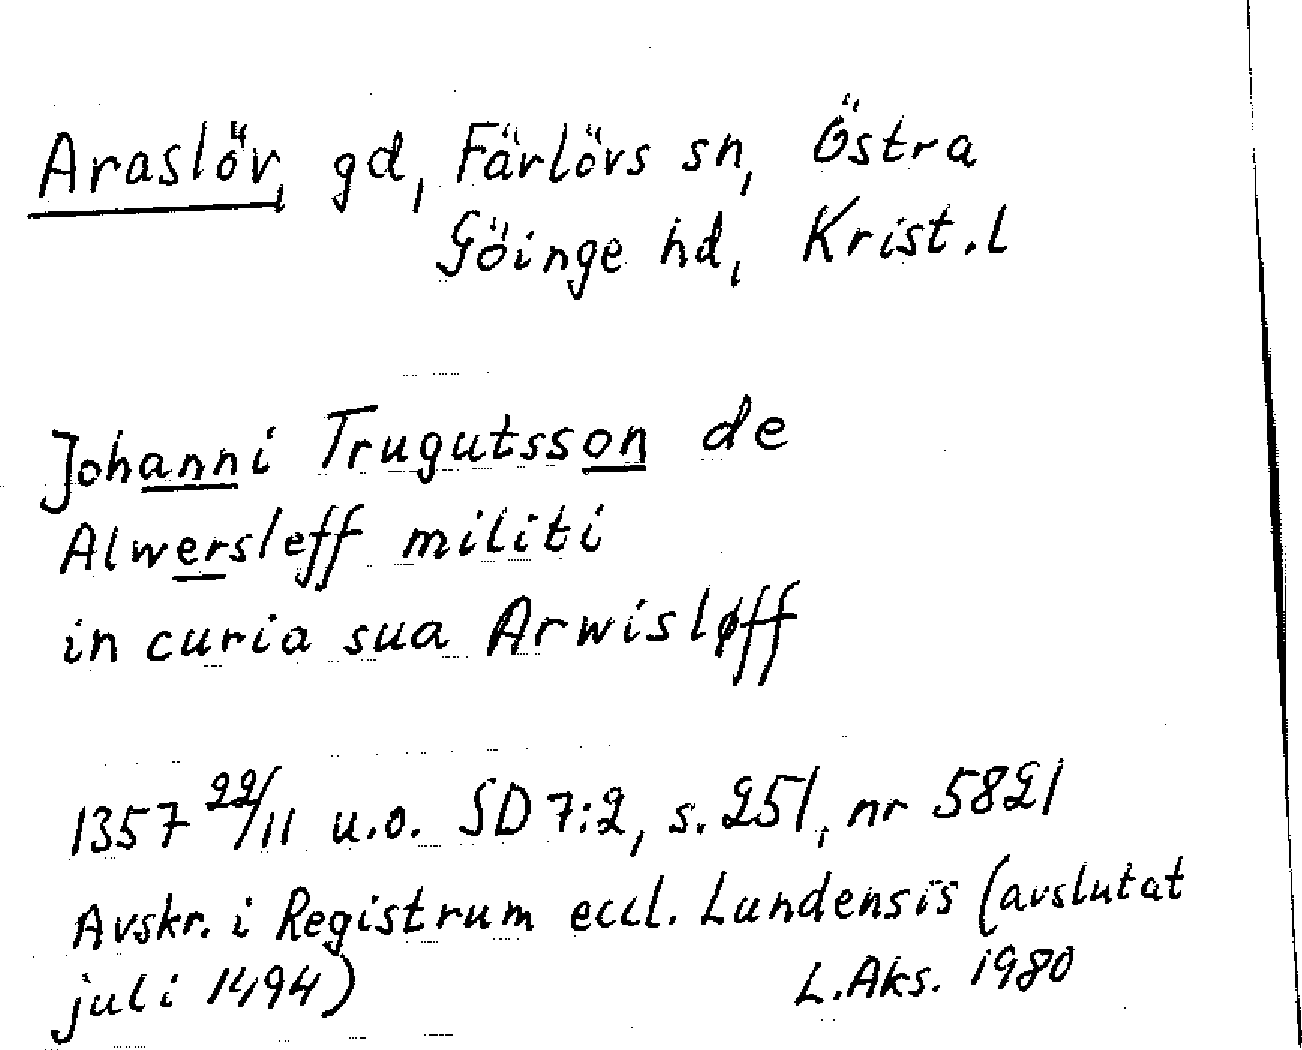 Araslöv, gd, Färlövs sn, Östra
Göinge hd, Krist.l
Johanni Trugutsson de
Alwersleff militi
in curia sua Arwisløff
1357 22/11 u.o. SD 7:2, s. 251, nr 5821
Avskr. i Registrum eccl. Lundensis (avslutat
juli 1494) L.Aks. 1980